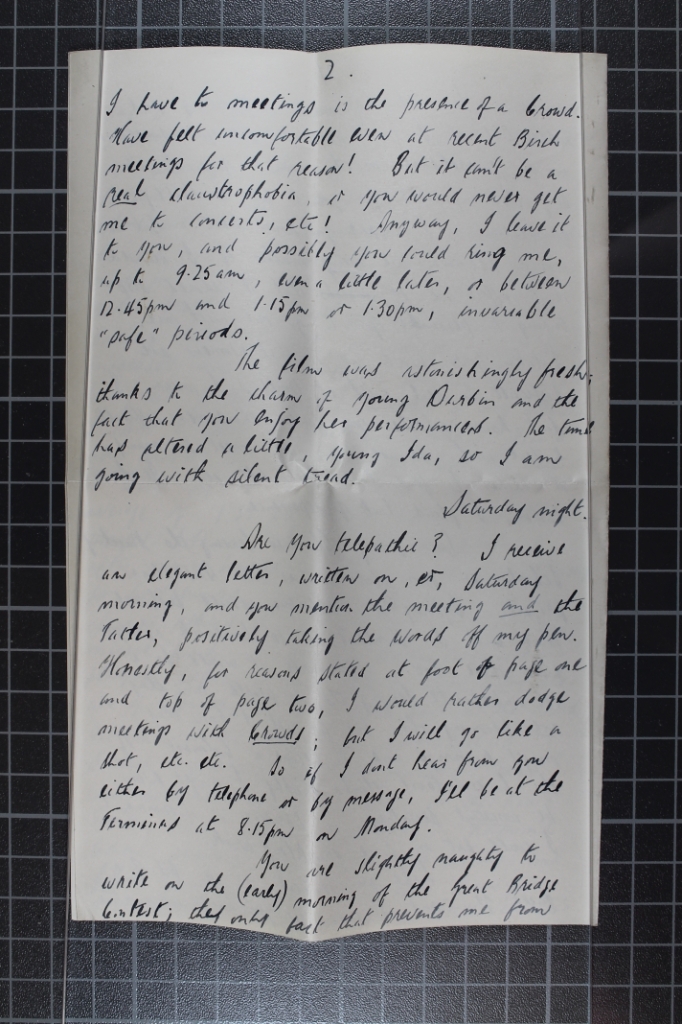 2.
I have to meetings is the presence of a Crowd.
Have felt uncomfortable even at recent Birch
meetings for that reason! But it can't be a
real claustrophobia, or you would never get
me to concerts, etc! Anyway, I leave it
to you, and possibly you could ring me,
up to 9.25am, even a little later, or between
12.45pm and 1.15pm or 1.30pm, invariable
"safe" periods.
The film was astonishingly fresh,
thanks to the charm of young Durbin and the
fact that you enjoy her performances. The time
has altered a little, young Ida, so I am
going with silent tread.
Saturday night.
Are you telepathic? I receive
an elegant letter, written on, er, Saturday
morning, and you mention the meeting and the
Tatler, positively taking the words off my pen.
Honestly, for reasons stated at foot of page one
and top of page two, I would rather dodge
meetings with Crowds; but I will go like a
shot, etc. etc. So if I don't hear from you
either by telephone or by message, I'll be at the
Terminus at 8.15pm on Monday.
You are slightly naughty to
write on the (early) morning of the Great Bridge
Contest; the only fact that prevents me from